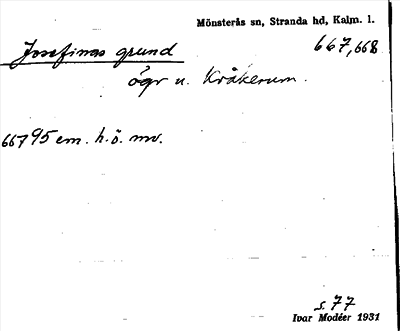 Mönsterås sn, Stranda hd, Kalm. l.
Josefinas grund
667,668
ögr u. Kråkerum.
66795 em. h.ö. mv.
s. 77
Ivar Modéer 1931